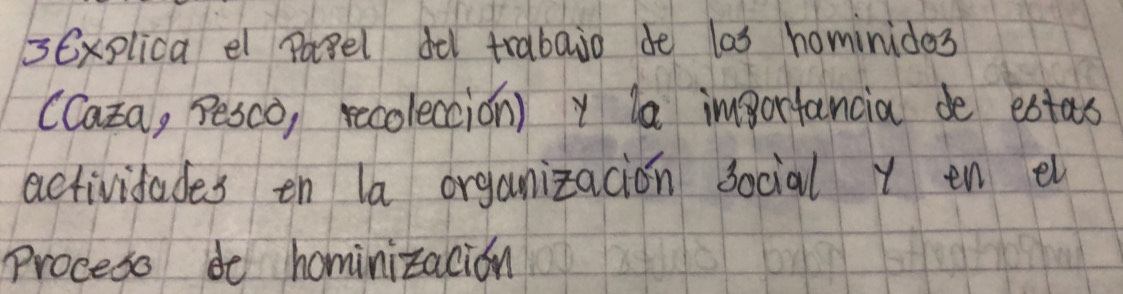 3 Explica el Papel del trabajo de los hominidos
(Caza, Pesca, recolección) y la importancia de estas
actividades en la organización social y en el
Proceso de hominización